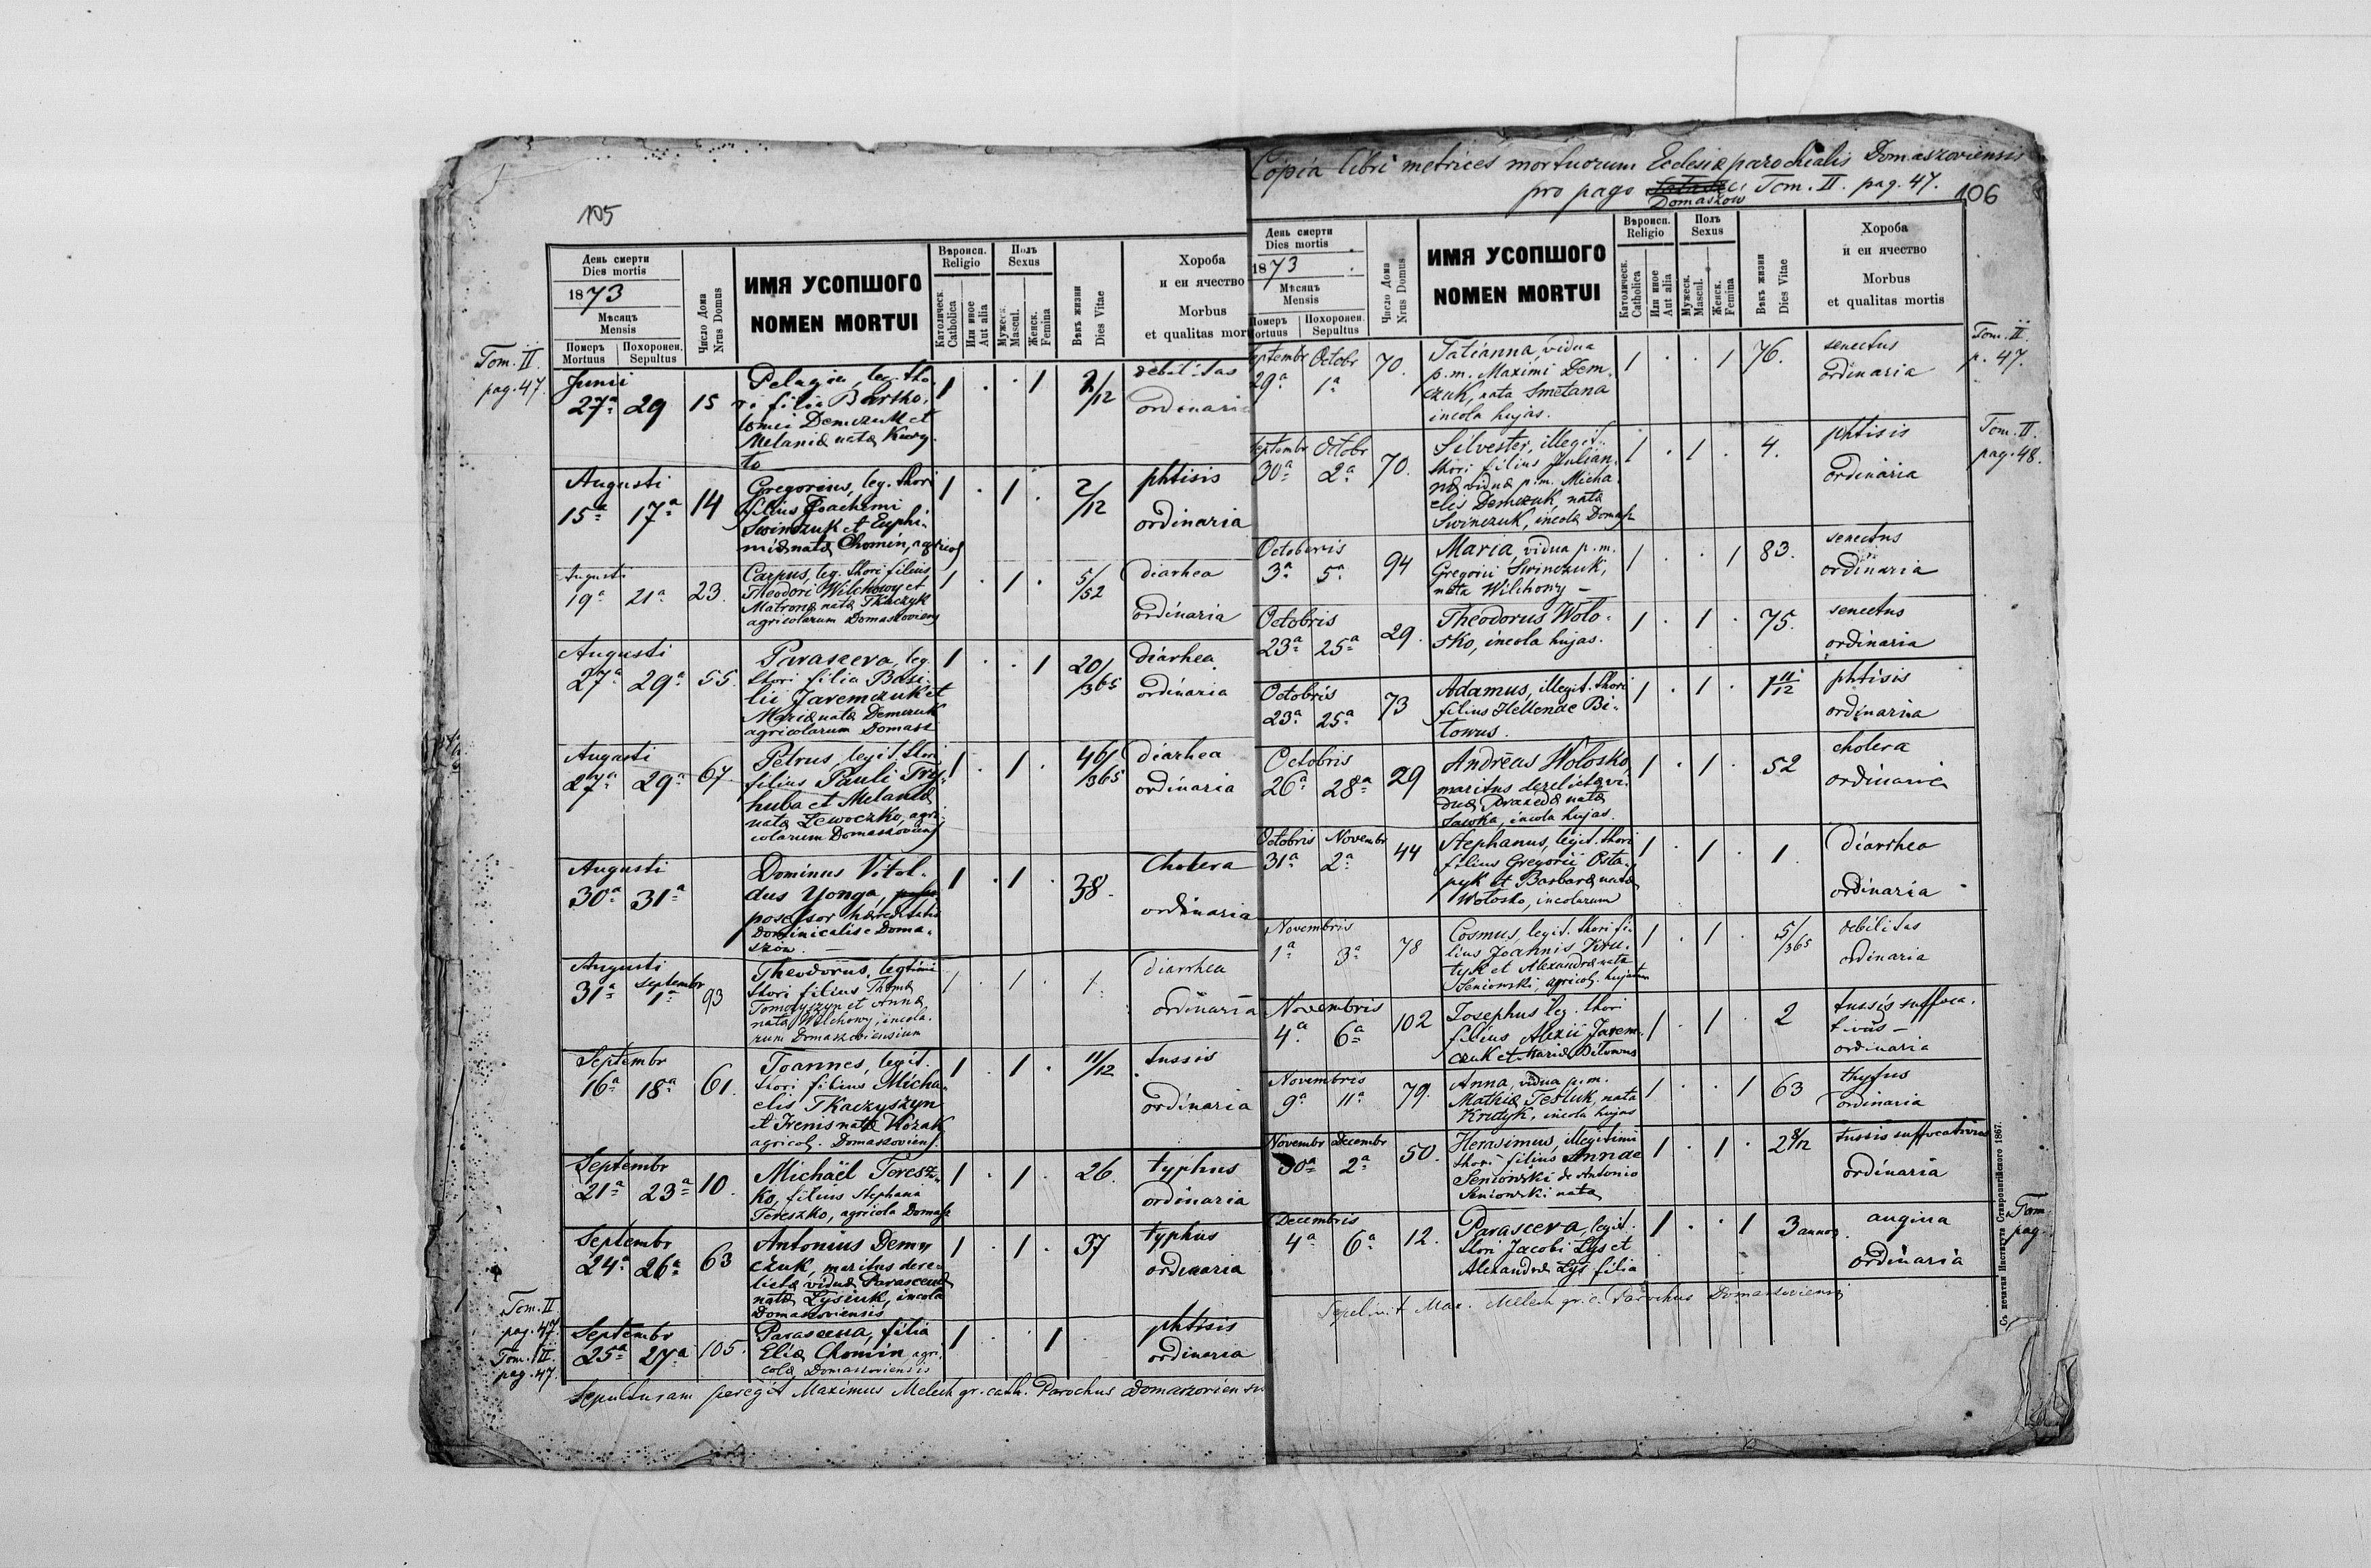 105
День смерти
Dies mortis
1873
Мѣсяцъ
Mensis
Померъ
Mortuus
Похоронен.
Sepultus
Число Дома
Nrus Domus
ИМЯ УСОПШОГО
NOMEN MORTUI
Вѣроисп.
Religio
Католическ.
Catholica
Или иное
Aut alia
Полъ
Sexus
Мужеск.
Mascul.
Женск.
Femina
Вѣкъ жизни
Dies Vitae
Хороба
и еи ячество
Morbus
et qualitas mor
Tom. II
pag. 47.
Junii
27ª 29 15
Pelagia, leg. tho-
ri filia Bartho-
lomei Demczuk et
Melaniæ natæ
1 . . 1
/12
debilitas
ordinaria
Augusti
15ª 17ª 14
Gregorius, leg. thori
filius Joachimi
Swinczuk et Euphi-
miæ natæ Chomin, agricol
1 . 1 .
2/12
phtisis
ordinaria
Augusti
19ª 21ª 23.
Carpus, leg. thori filius
Theodori Wilchowy et
Matronæ natæ Tkaczyk
agricolarum Domaszoviens
1 . 1 .
5/52
diarhea
ordinaria
Augusti
27ª 29ª 55.
Parascera, leg.
thori filia Basi-
lii Jaremczuk et
Mariæ natæ Demczuk
agricolarum Domasz
1 . . 1
20/365
diarhea
ordinaria
Augusti
27ª 29ª 67.
Petrus, legit. thori
filius Pauli Try-
huba et Melaniæ
natæ Lewoczko, agri-
colarum Domaszoviens
1 . 1 .
46/365
diarhea
ordinaria
Augusti
30ª 31ª
Dominus Vitol-
dus Yonga,
posessor hæreditatis
dominicalis e Doma-
szow.
1 . 1 .
38.
Cholera
ordinaria
Augusti
31ª Septembr 1ª 93
Theodorus, legtimi
thori filius Thomæ
Tomczyszyn et Annæ,
natæ Wilchowy, incola-
rum Domaszoviensium
1 . 1 .
1.
diarrhea
ordinaria
Septembr
16ª 18ª 61.
Joannes, legit.
thori filius Micha-
elis Tkaczyszyn
et Irenis natæ Kozak
agricol. Domaszoviens.
1 . 1 .
11/12
tussis
ordinaria
Septembr
21ª 23ª 10.
Michaël Teresz-
ko, filius Stephani
Tereszko, agricola Domasz
1 . 1 .
26.
typhus
ordinaria
Septembr
24ª 26ª 63
Antonius Dem
czuk, maritus dere-
lictæ viduæ Parascevæ
natæ Łysiuk, incola
Domaszoviensis
1 . 1 .
37
typhus
ordinaria
Tom. II
pag. 47.
Tom. II.
pag. 47.
Septembr
25ª 27ª 105.
Parasceva, filia
Eliæ Chomin, agri-
colæ Domaszoviensis
1 . . 1
phtisis
ordinaria
Sepulturam peregit Maximus Melech gr. cath. Parochus Domaszoviensis
Copia libri metrices mortuorum Ecclesiæ parochialis Domaszoviensis
pro pago Domaszow Tom. II. pag. 47.
106
День смерти
Dies mortis
1873
Мѣсяцъ
Mensis
Померъ
Mortuus
Похоронен.
Sepultus
Число Дома
Nrus Domus
ИМЯ УСОПШОГО
NOMEN MORTUI
Вѣроисп.
Religio
Католическ.
Catholica
Или иное
Aut alia
Полъ
Sexus
Мужеск.
Mascul.
Женск.
Femina
Вѣкъ жизни
Dies Vitae
Хороба
и еи ячество
Morbus
et qualitas mortis
Septembr Octobr
29ª 1ª 70.
Tatianna, vidua
p.m. Maximi Dem-
czuk, nata Smetana
incola hujas.
1 . . 1
76.
senectus
ordinaria
Tom. II.
p. 47.
Septembr Octobr
30ª 2ª 70.
Silvester, illegit.
thori filius Julian-
næ viduæ p.m. Micha-
elis Demczuk, natæ
Swinczuk, incolæ Domasz
1 . 1 .
4.
phtisis
ordinaria
Tom. II.
pag. 48.
Octobris
3ª 5ª 94
Maria, vidua p.m.
Gregorii Swinczuk,
nata Wilchowy –
1 . . 1
83.
senectus
ordinaria
Octobris
23ª 25ª 29.
Theodorus Wolo-
sko, incola hujas.
1 . 1 .
75.
senectus
ordinaria
Octobris
23ª 25ª 73
Adamus, illegit. thori
filius Hellenae Bi-
towus.
1 . 1 .
1 11/12
phtisis
ordinaria
Octobris
26ª 28ª 29
Andreas Wolosko,
maritus derelictæ vi-
duæ Praxedæ natæ
Sawka, incola hujas.
1 . 1 .
52
cholera
ordinaria
Octobris Novembr
31ª 2ª 44
Stephanus, legit. thori
filius Gregorii Osta-
pyk et Barbaræ natæ
Wolosko, incolarum
1 . 1 .
1.
diarrhea
ordinaria
Novembris
1ª 3ª 78
Cosmus, legit. thori fi-
lius Joannis Kru-
tyk et Alexandræ nata
Seniowski, agricol. hujatum
1 . 1 .
5/365
debilitas
ordinaria
Novembris
4ª 6ª 102
Josephus leg. thori
filius Alexii Jarem-
czuk et Mariæ Bitowus
1 . 1 .
2
tussis suffoca-
tivus –
ordinaria
Novembris
9ª 11ª 79.
Anna, vidua p.m.
Mathiæ Tesluk, nata
Krutyk, incola hujas
1 . . 1
63
thyfus
ordinaria
Novembr Decembr
30ª 2ª 50.
Herasimus, illegitimi
thori filius Annae
Seniowski de Antonio
Seniowski natæ
1 . 1 .
2 8/12
tussis suffocativus
ordinaria
Decembris
4ª 6ª 12.
Parasceva, legit.
thori Jacobi Łys et
Alexandræ Łys filia
1 . . 1
3 annor.
angina
ordinaria
Tom
pag.
Sepelivit Max. Melech gr. c. Parochus Domaszoviensis
Съ печатни Института Ставропигійского 1867.